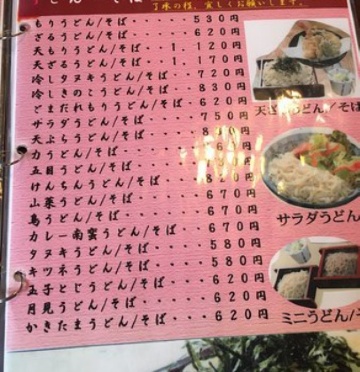 丁味の程、宜しくお願いします。
もりうどん/そば・・・・530円
ざるうどん/そば・・・・620円
天もりうどん/そば・・1.120円
天ざるうどん/そば・・1.170円
冷しタヌキうどん/そば・・720円
冷しきのこうどん/そば・・830円
ごまだれもりうどん/そば・620円
サラダうどん/そば・・・750円
天ぷらうどん/そば
力うどん/そば
五目うどん/そば
けんちんうどん/そば
山菜うどん/そば・・・・670円
鳥うどん/そば・・・・・670円
カレー南蛮うどん/そば・・670円
タヌキうどん/そば・・・580円
キツネうどん/そば・・・580円
玉子とじうどん/そば・・・620円
月見うどん/そば・・・・620円
かきたまうどん/そば・・・620円
天ざるうどん/そば
サラダうどん
ミニうどん/そ